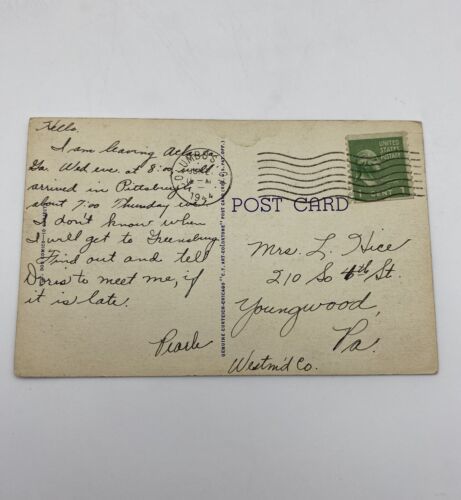 Hello.
I am leaving Atlanta
Ga. Wed eve at 8:00 will
arrived in Pittsburgh
about 7:00 Thursday eve
I don't know when
I will get to Greensburg
Find out and tell
Doris to meet me, if
it is late.
Pearle
COLUMBUS
194
UNITED
STATES
POSTAGE
1 CENT 1
POST CARD
Mrs. L. Hice
210 So 4th St.
Youngwood,
Pa.
Westm'd Co.
GENUINE CURTEICH-CHICAGO "C.T. ART-COLORTONE" POST CARD